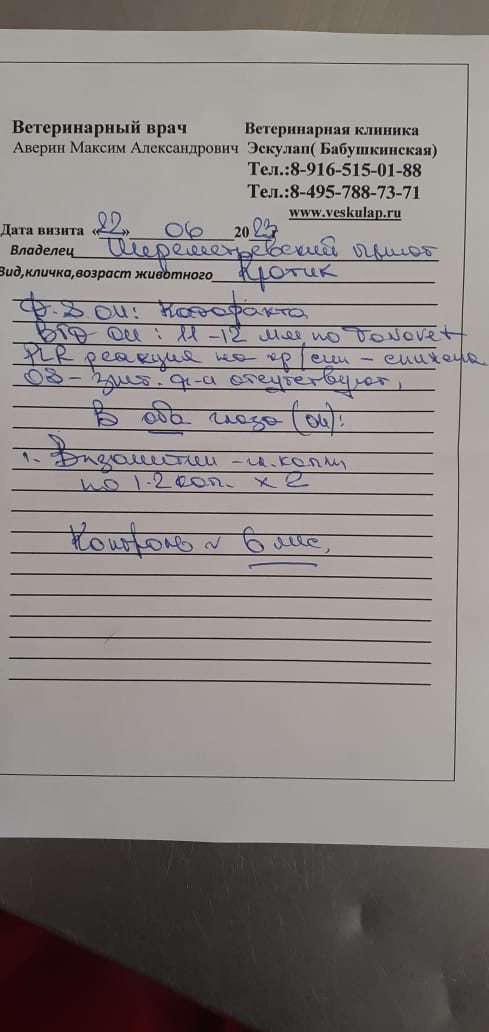 Ветеринарный врач Ветеринарная клиника
Аверин Максим Александрович Эскулап( Бабушкинская)
Тел.:8-916-515-01-88
Тел.:8-495-788-73-71
www.veskulap.ru
Дата визита «22» 06 2023
Владелец Шереметьевский приют
Вид,кличка,возраст животного Кротик
Ф.З.ОИ: Катаракта
ВГД ОИ: 11-12 мм по Tonovet
PLR реакция на кр/син - снижена
OS - зрит. ф-и отсутствуют.
В оба глаза (ОИ):
1. Визометин - гл. капли
по 1-2 кап. x 2
Контроль ~ 6 мес.